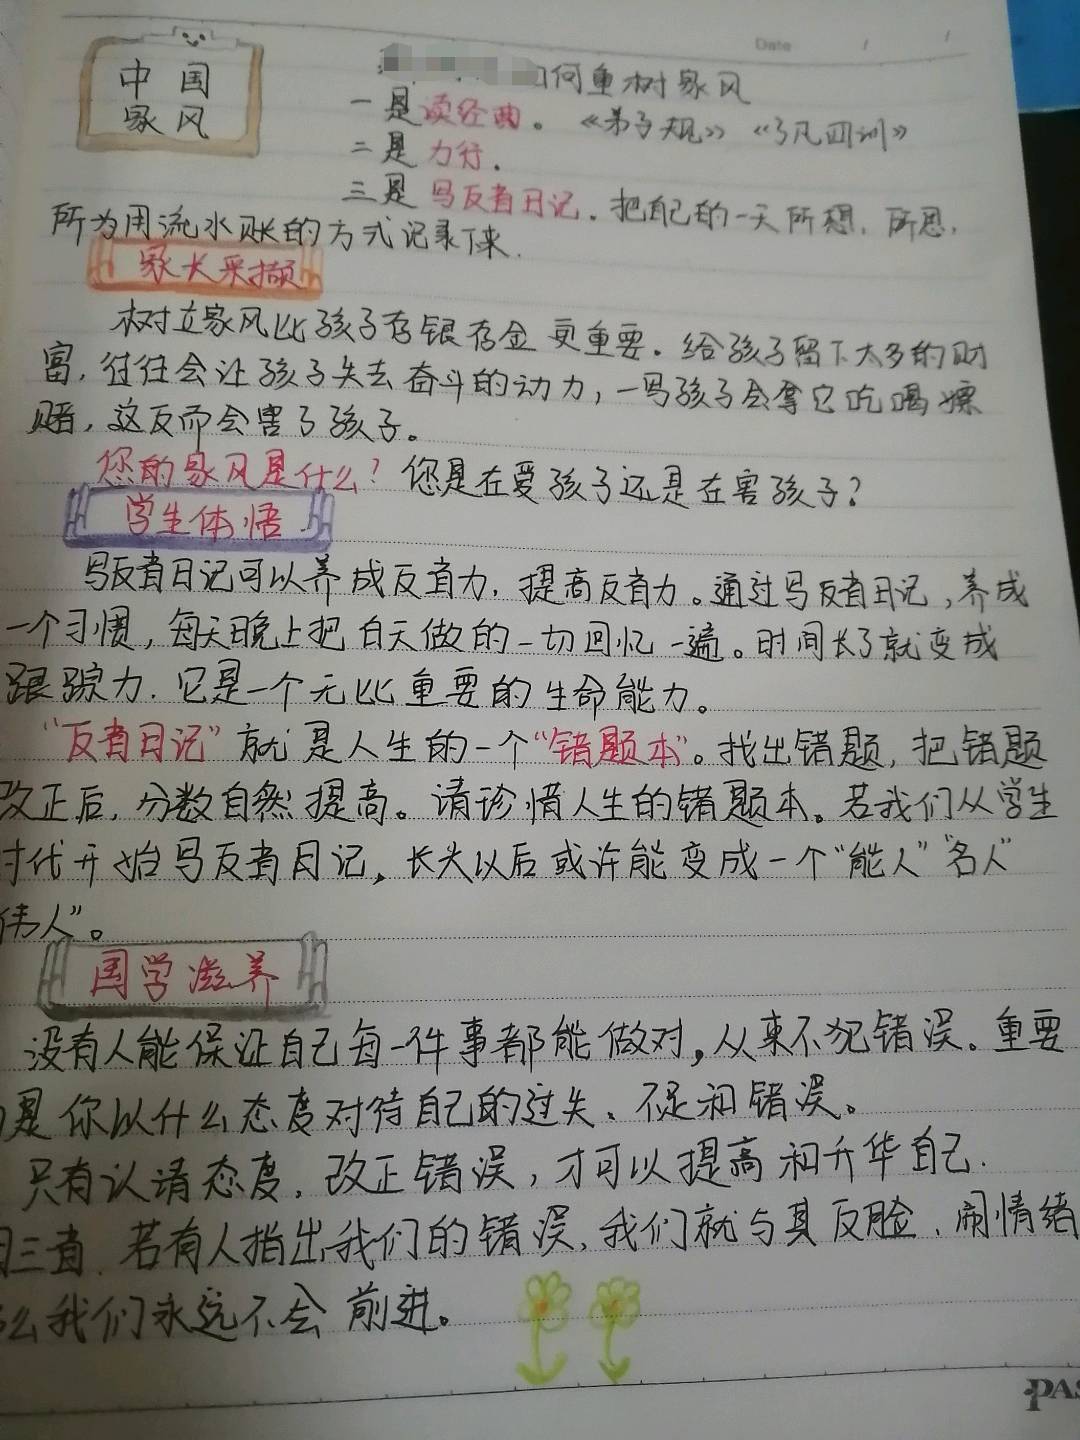 中国
家风
Date / /
何重树家风
一是读经典。《弟子规》《了凡四训》
二是力行.
三是写反省日记.把自己的一天所想.所思.
所为用流水账的方式记录下来.
家长采撷
树立家风比孩子存银存金更重要。给孩子留下太多的财
富,往往会让孩子失去奋斗的动力,一写孩子会拿它吃喝嫖
赌,这反而会害了孩子。
您的家风是什么?您是在爱孩子还是在害孩子?
学生体悟
写反省日记可以养成反省力,提高反省力。通过写反省日记,养成
一个习惯,每天晚上把白天做的一切回忆一遍。时间长了就变成
跟踪力.它是一个无比重要的生命能力。
“反省日记”就是人生的一个“错题本”。找出错题,把错题
改正后,分数自然提高。请珍惜人生的错题本。若我们从学生
时代开始写反省日记,长大以后或许能变成一个“能人”“名人”
伟人”。
国学滋养
没有人能保证自己每一件事都能做对,从来不犯错误。重要
是你以什么态度对待自己的过失、不足和错误。
只有认清态度,改正错误,才可以提高和升华自己.
三者.若有人指出我们的错误,我们就与其反脸、闹情绪
么我们永远不会前进。
PAS